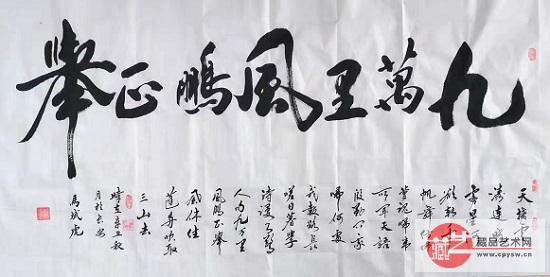 九萬里風鵬正舉
天接雲
濤連曉
霧星河
欲轉千
帆舞
歸帝
所聞天語
殷勤問我
歸何處
我報路長
嗟日暮學
詩謾有驚
人句九万里
風鵬正舉
風休住
蓬舟吹取
三山去
時在辛丑秋
月於長安
馮斌虎
藏品艺术网
www.cpysw.com